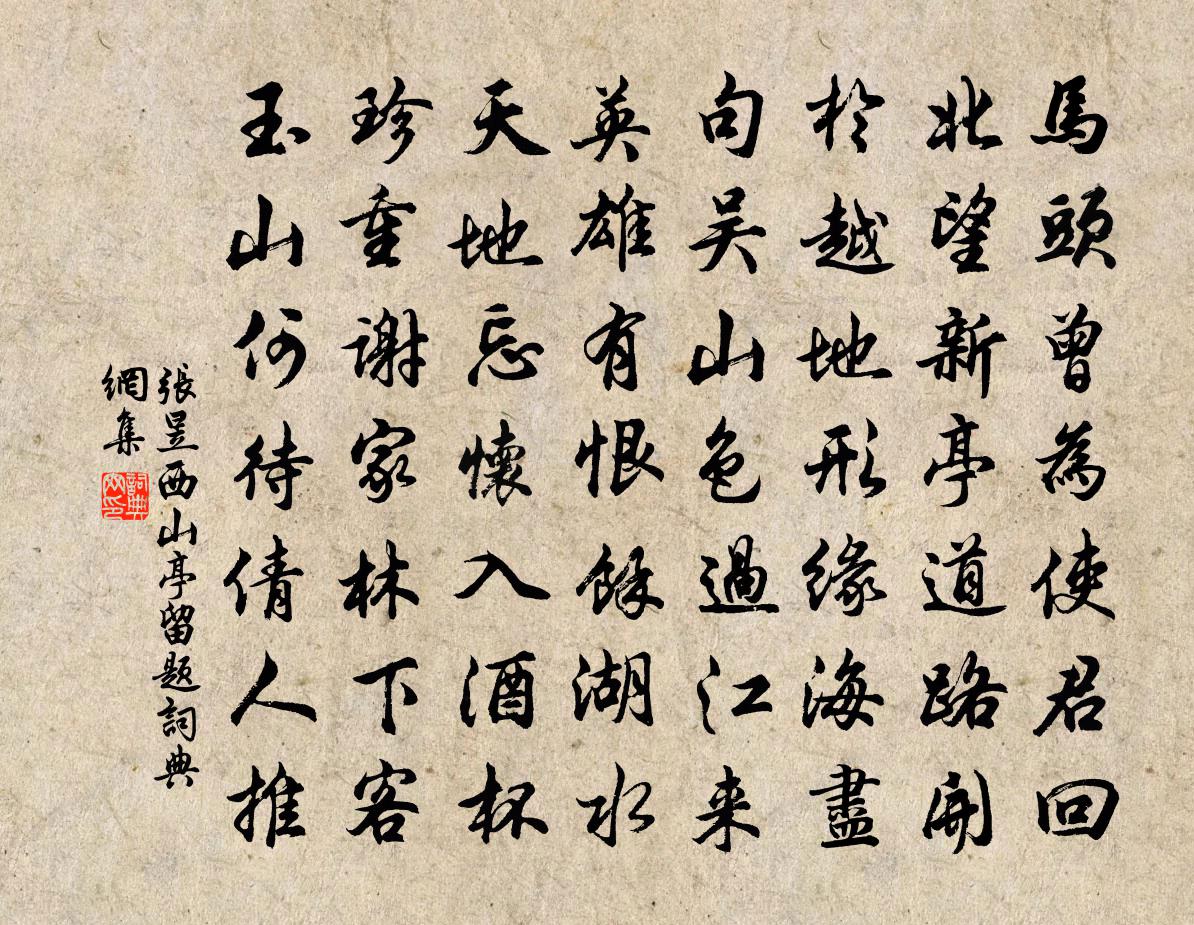 馬頭曾為使君回
北望新亭道路開
於越地形緣海盡
句吴山色過江来
英雄有恨餘湖水
天地忘懷入酒杯
珍重謝家林下客
玉山何待倩人推
張昱西山亭留题詞典
網集
詞典
网印